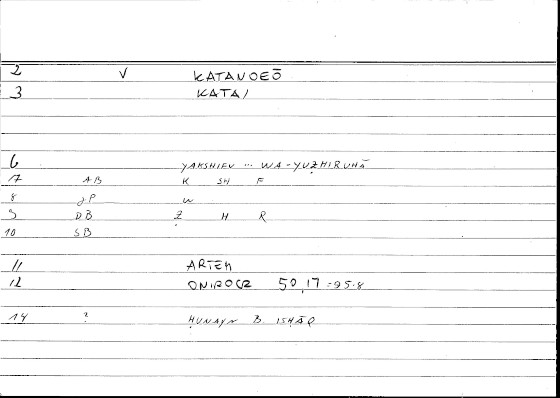 2 V KATANOEŌ
3 KATA/
6 YAKSHIFU ... WA-YUẒHIRUHĀ
7 AB K SH F
8 JP W
9 DB Ẓ H R
10 SB
11 ARTEM
12 ONIROCR 50,17 = 95.8
14 ? ḤUNAYN B. ISḤĀQ